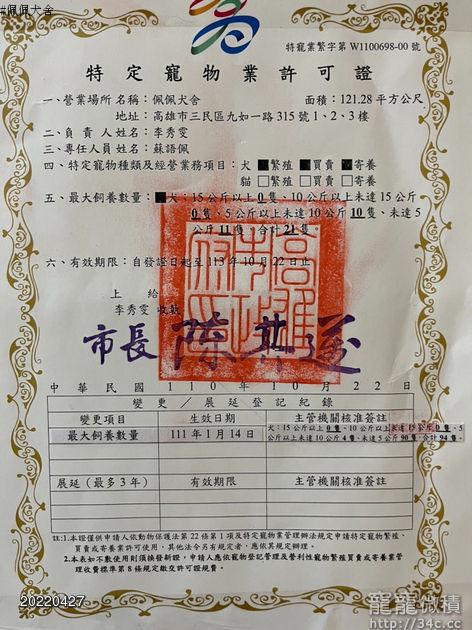 #佩佩犬舍
特寵業繁字第 W1100698-00 號
特定寵物業許可證
一、營業場所名稱：佩佩犬舍 面積：121.28 平方公尺
地址：高雄市三民區九如一路 315 號 1、2、3 樓
二、負責人姓名：李秀雯
三、專任人員姓名：蘇語佩
四、特定寵物種類及經營業務項目：犬 ■繁殖 ■買賣 ■寄養
貓 □繁殖 □買賣 □寄養
五、最大飼養數量：■犬：15 公斤以上 0 隻、10 公斤以上未達 15 公斤
0 隻、5 公斤以上未達 10 公斤 10 隻、未達 5
公斤 11 隻，合計 21 隻。
六、有效期限：自發證日起至 113 年 10 月 22 日止
上 給
李秀雯 收執
市長 陳其邁
中華民國 110 年 10 月 22 日
變更／展延登記紀錄
變更項目 生效日期 主管機關核准簽註
最大飼養數量 111 年 1 月 14 日 犬：15 公斤以上 0 隻、10 公斤以上未達 15 公斤 0 隻、5
公斤以上未達 10 公斤 4 隻、未達 5 公斤 90 隻，合計 94 隻。
展延（最多 3 年） 有效期限 主管機關核准簽註
註：1.本證僅供申請人依動物保護法第 22 條第 1 項及特定寵物業管理辦法規定申請特定寵物繁殖、
買賣或寄養業許可使用，其他法令另有規定者，應依其規定辦理。
2.本表如不敷使用則須換發新證，申請人應依寵物登記管理及營利性寵物繁殖買賣或寄養業管
理收費標準第 8 條規定繳交許可證規費。
20220427
寵寵微積
http://34c.cc